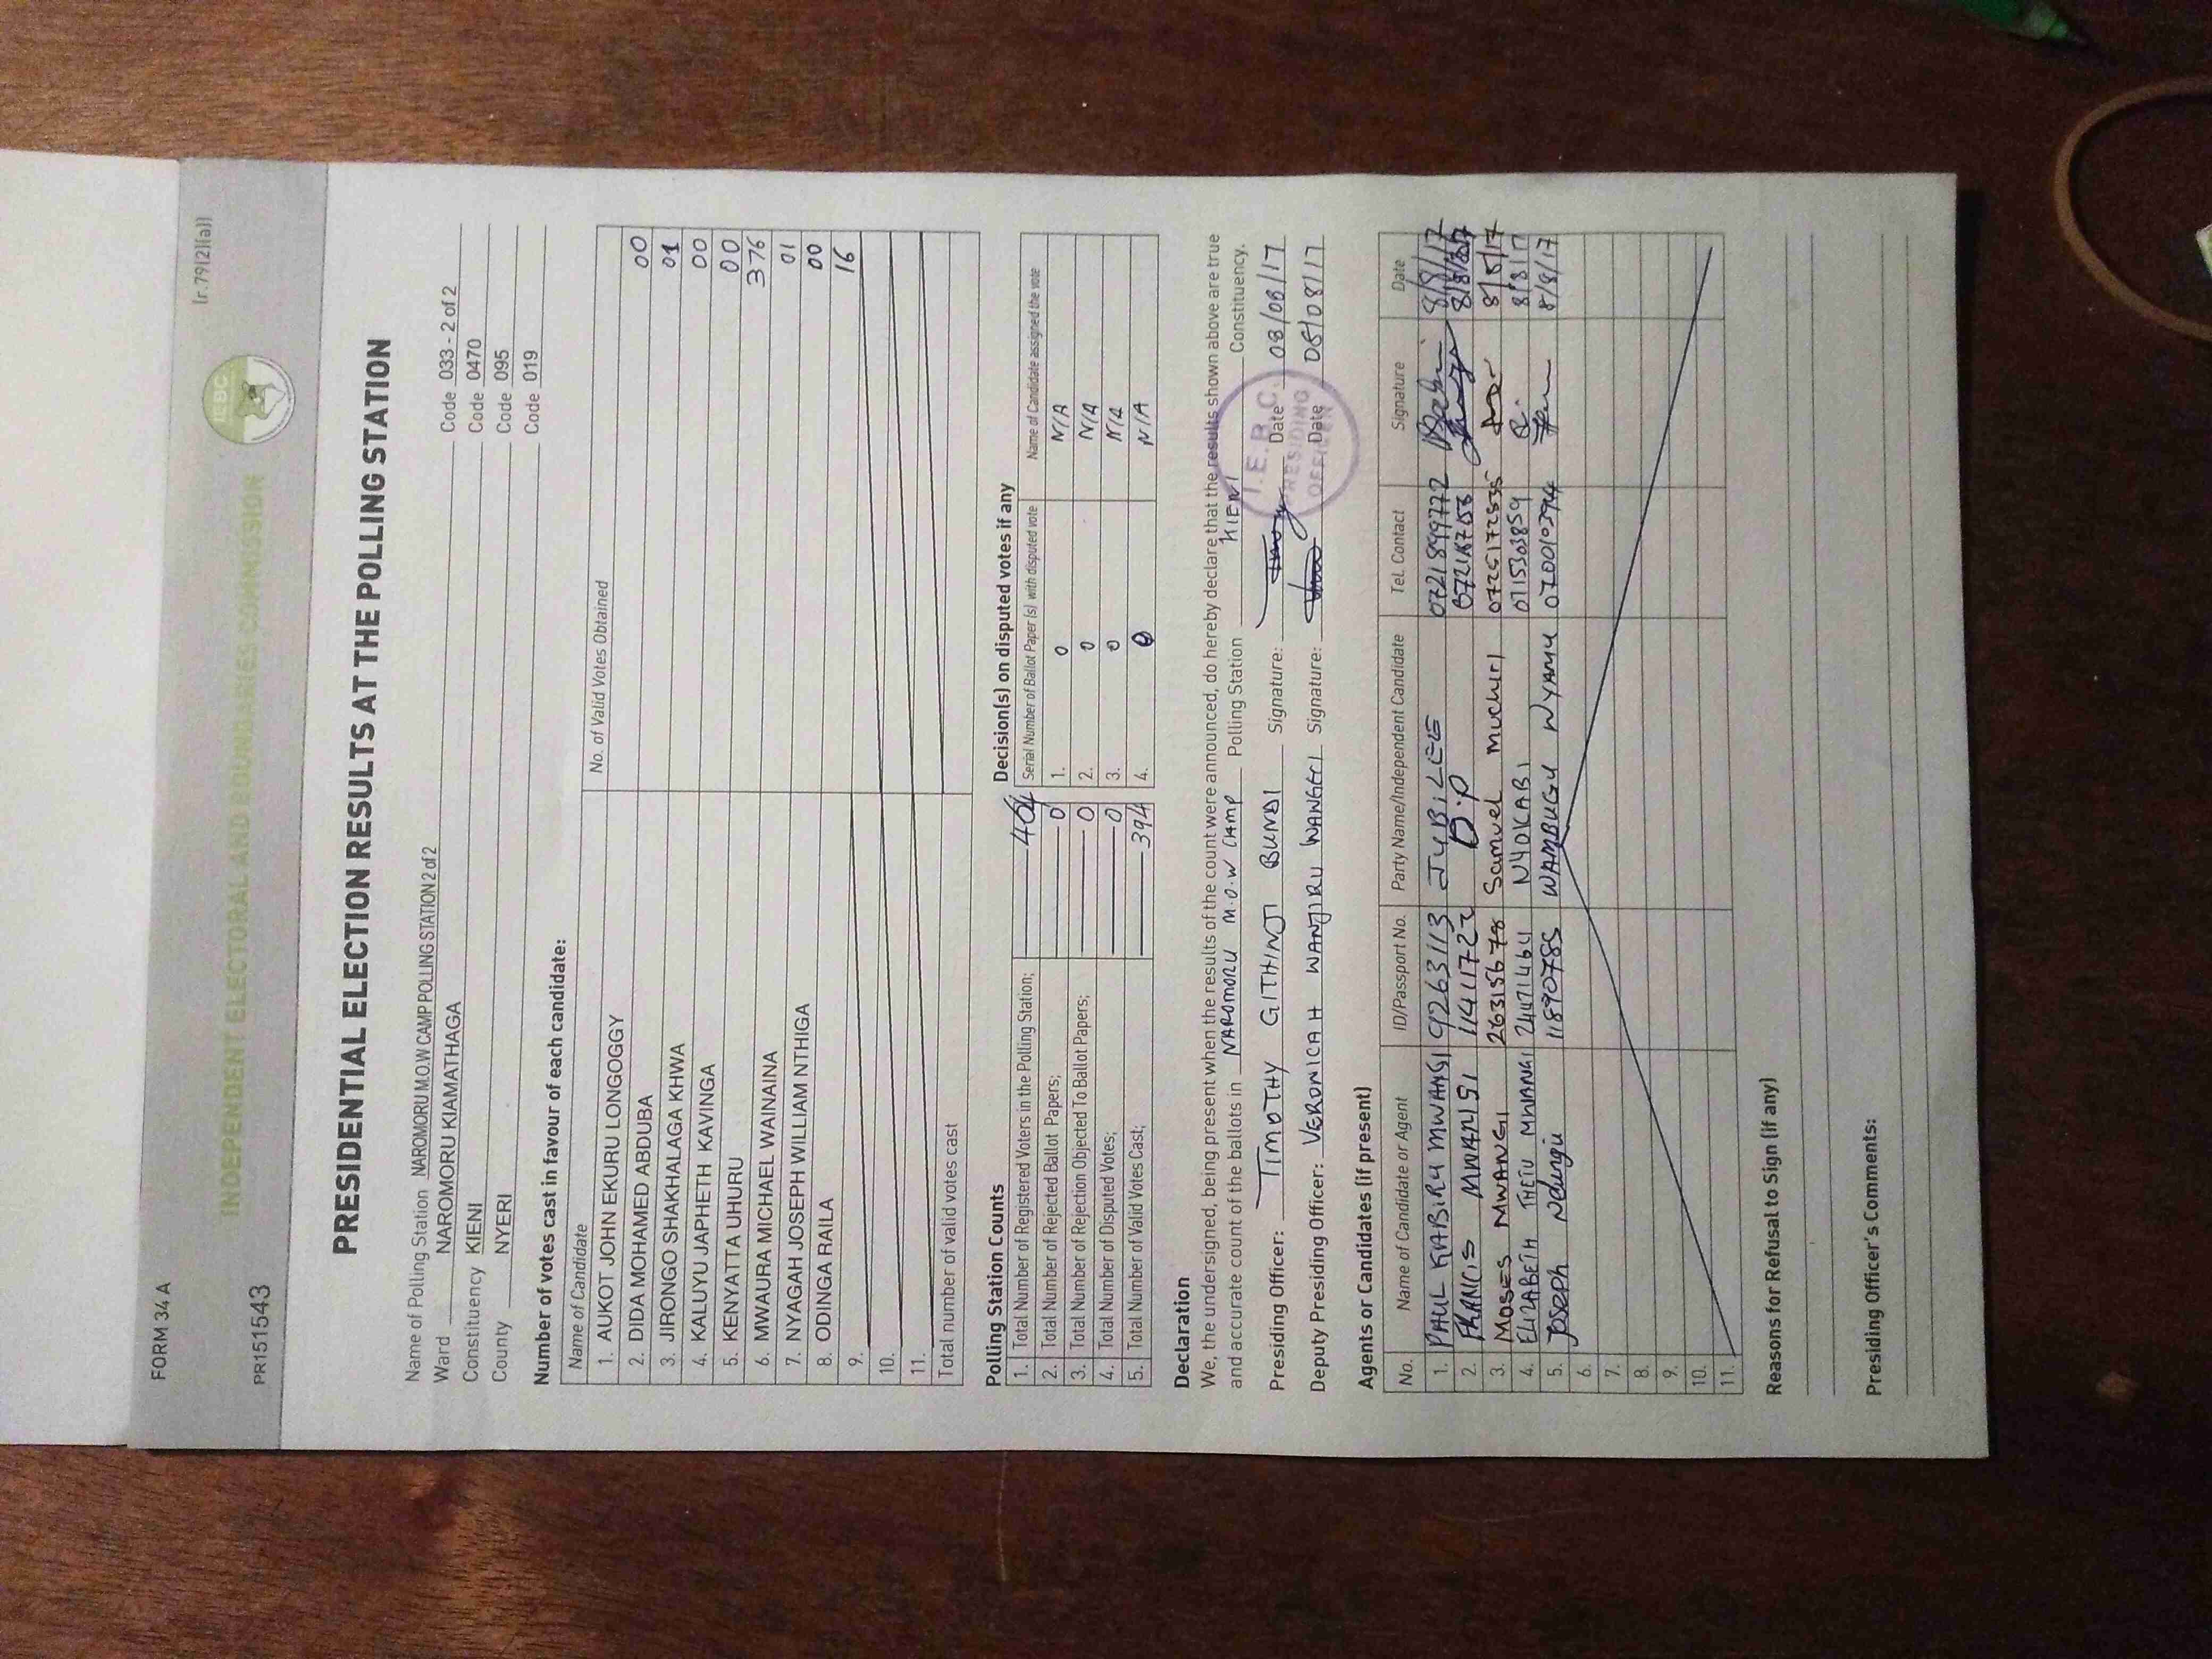 FORM 34 A
(r.79(2)(a))
PR151543
INDEPENDENT ELECTORAL AND BOUNDARIES COMMISSION
IEBC
PRESIDENTIAL ELECTION RESULTS AT THE POLLING STATION
Name of Polling Station NAROMORU M.O.W CAMP POLLING STATION 2 of 2 Code 033 - 2 of 2
Ward NAROMORU KIAMATHAGA Code 0470
Constituency KIENI Code 095
County NYERI Code 019
Number of votes cast in favour of each candidate:
Name of Candidate No. of Valid Votes Obtained
1. AUKOT JOHN EKURU LONGOGGY 00
2. DIDA MOHAMED ABDUBA 01
3. JIRONGO SHAKHALAGA KHWA 00
4. KALUYU JAPHETH KAVINGA 00
5. KENYATTA UHURU 376
6. MWAURA MICHAEL WAINAINA 01
7. NYAGAH JOSEPH WILLIAM NTHIGA 00
8. ODINGA RAILA 16
9.
10.
11.
Total number of valid votes cast
Polling Station Counts
1. Total Number of Registered Voters in the Polling Station;
2. Total Number of Rejected Ballot Papers; 0
3. Total Number of Rejection Objected To Ballot Papers; 0
4. Total Number of Disputed Votes; 0
5. Total Number of Valid Votes Cast; 394
Decision(s) on disputed votes if any
Serial Number of Ballot Paper (s) with disputed vote Name of Candidate assigned the vote
1. 0 N/A
2. 0 N/A
3. 0 N/A
4. 0 N/A
Declaration
We, the undersigned, being present when the results of the count were announced, do hereby declare that the results shown above are true
and accurate count of the ballots in NAROMORU M.O.W CAMP Polling Station KIENI Constituency.
Presiding Officer: TIMOTHY GITHINJI BUNDI Signature: Date 08/08/17
Deputy Presiding Officer: VERONICAH WANJIRU WANGECI Signature: Date 08/08/17
I.E.B.C.
PRESIDING
OFFICER
Agents or Candidates (if present)
No. Name of Candidate or Agent ID/Passport No. Party Name/Independent Candidate Tel. Contact Signature Date
1. PAUL KABIRU MWANGI 9263113 JUBILEE 0721899772 8/8/17
2. FRANCIS 11411722 D.P
3. MOSES MWANGI 26315678 Samuel Muchiri 8/8/17
4. ELIZABETH THETU MWANGI 24471464 NYOKABI 0715303859 8/8/17
5. Joseph Ndungu 11890785 WAMBUGU NYAMU 8/8/17
6.
7.
8.
9.
10.
11.
Reasons for Refusal to Sign (if any)
Presiding Officer's Comments: